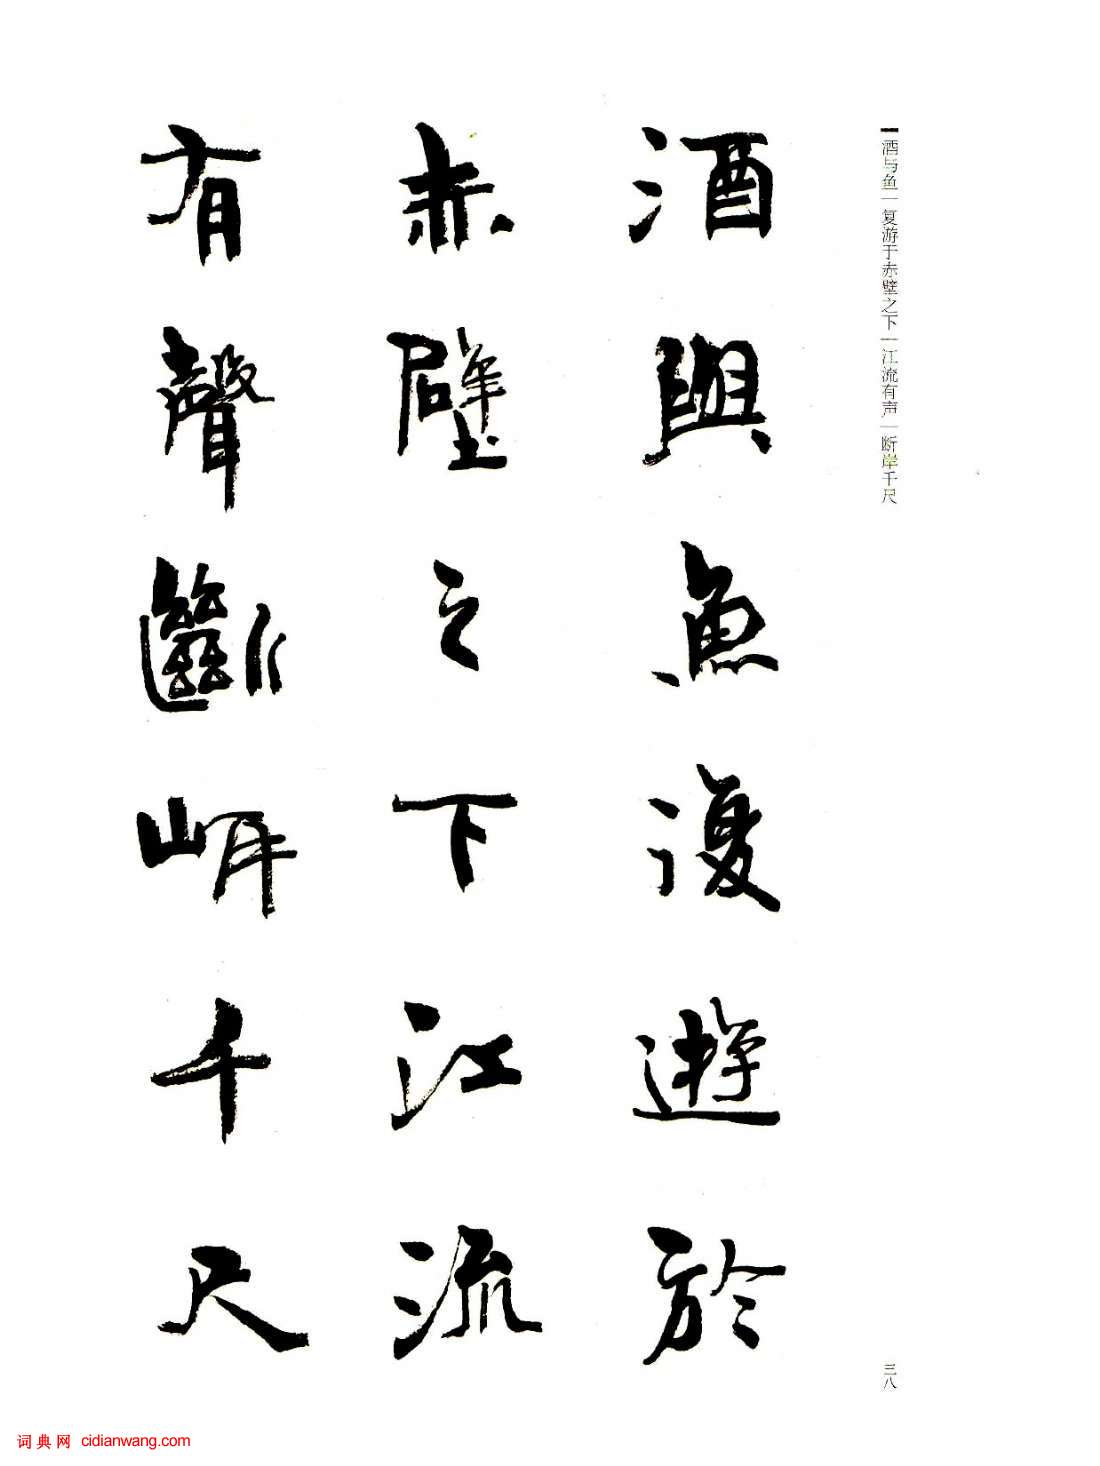 酒与鱼｜复游于赤壁之下｜江流有声｜断岸千尺
酒與魚復遊於
赤壁之下江流
有聲斷岸千尺
三八
词典网 cidianwang.com